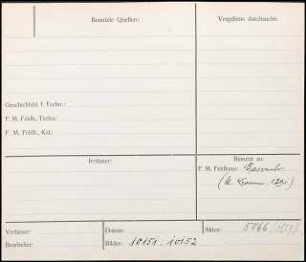 Benutzte Quellen:
Vergebens durchsucht:
Geschichtsbl. f. Techn.:
F. M. Feldh., Techn.:
F. M. Feldh., Kat.:
Irrtümer:
Benutzt zu:
F. M. Feldhaus:
Verfasser:
Datum:
Akten:
Bearbeiter:
Bilder: 10151. 10152